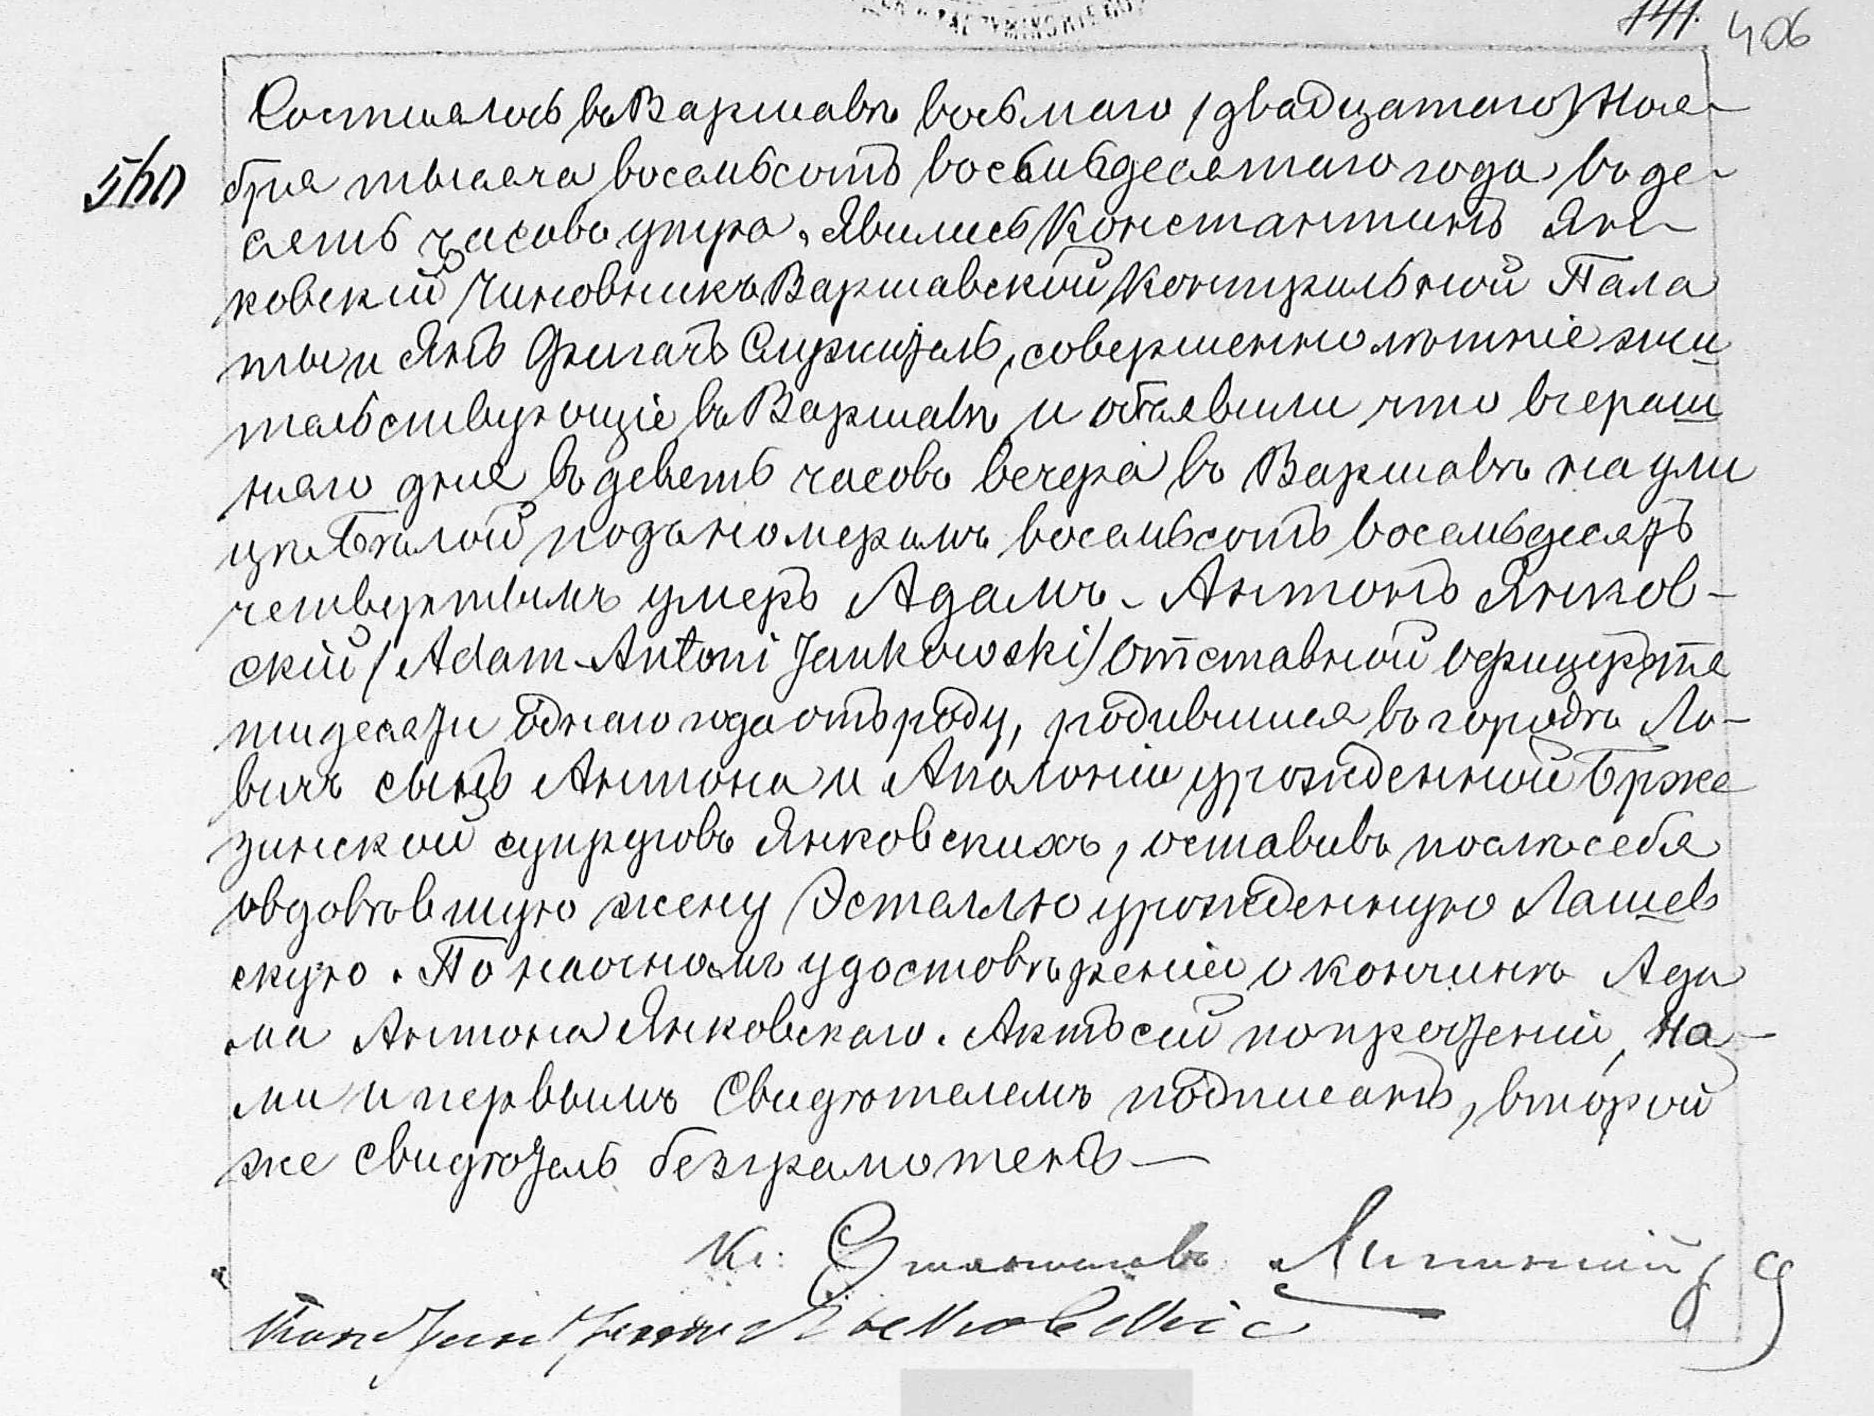 141. 406
560
Состоялось въ Варшавѣ восьмаго (двадцатаго) Ноя-
бря тысяча восемьсотъ восемьдесятаго года въ де-
сять часовъ утра. Явились Константинъ Ян-
ковскій Чиновникъ Варшавской Контрольной Пала
ты и Янъ Служитель, совершеннолѣтніе жи
тельствующіе въ Варшавѣ и объявили что вчераш
няго дня въ девять часовъ вечера въ Варшавѣ на ули
цѣ Бѣлой подъ номеромъ восемьсотъ восемьдесятъ
четвертымъ умеръ Адамъ-Антонъ Янков-
скій (Adam-Antoni Jankowski) отставной офицеръ пя
тидесяти однаго года отъ роду, родившійся въ городѣ Ло-
вичъ сынъ Антона и Аполоніи урожденной Брже
зинской супруговъ Янковскихъ, оставивъ послѣ себя
овдовѣвшую жену Эстеллю урожденную Лашев
скую. По наочномъ удостовѣреніи о кончинѣ Ада
ма Антона Янковскаго. Актъ сей по прочтеніи, на-
ми и первымъ свидѣтелемъ подписанъ, второй
же свидѣтель безграмотенъ—
Кс: